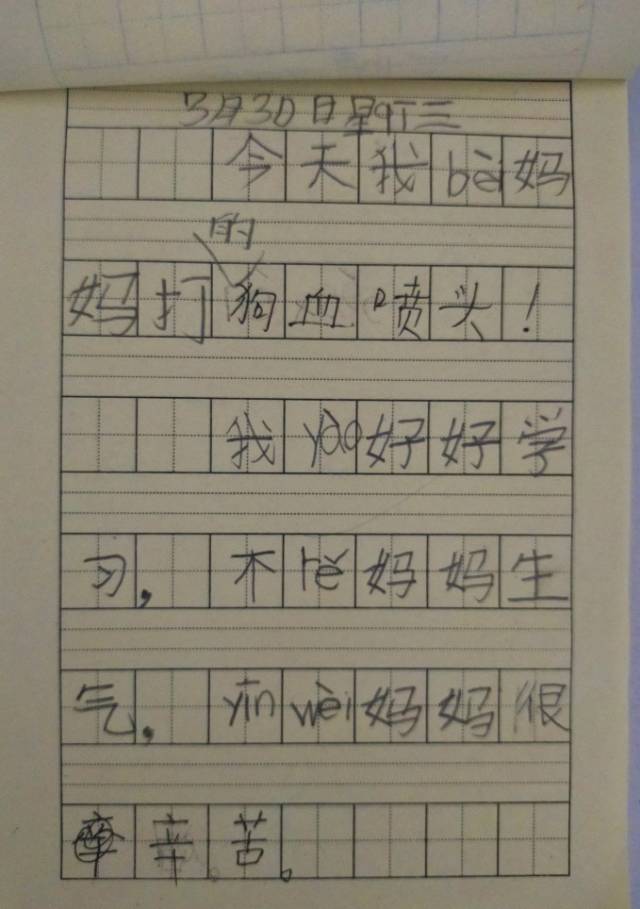 3月30日星期三
今天我bèi妈
妈打的狗血喷头!
我yào好好学
习,不rě妈妈生
气,yīn wèi妈妈很
辛苦。